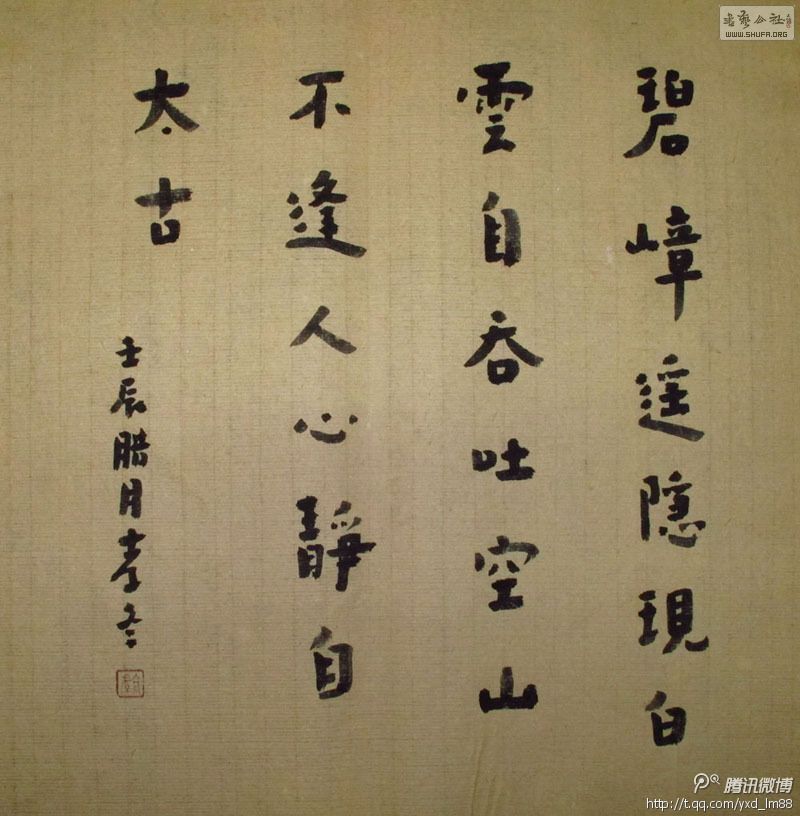 碧嶂遥隱現白
雲自吞吐空山
不逢人心靜自
太古
壬辰臘月孝冬
書藝公社
WWW.SHUFA.ORG
腾讯微博
http://t.qq.com/yxd_lm88